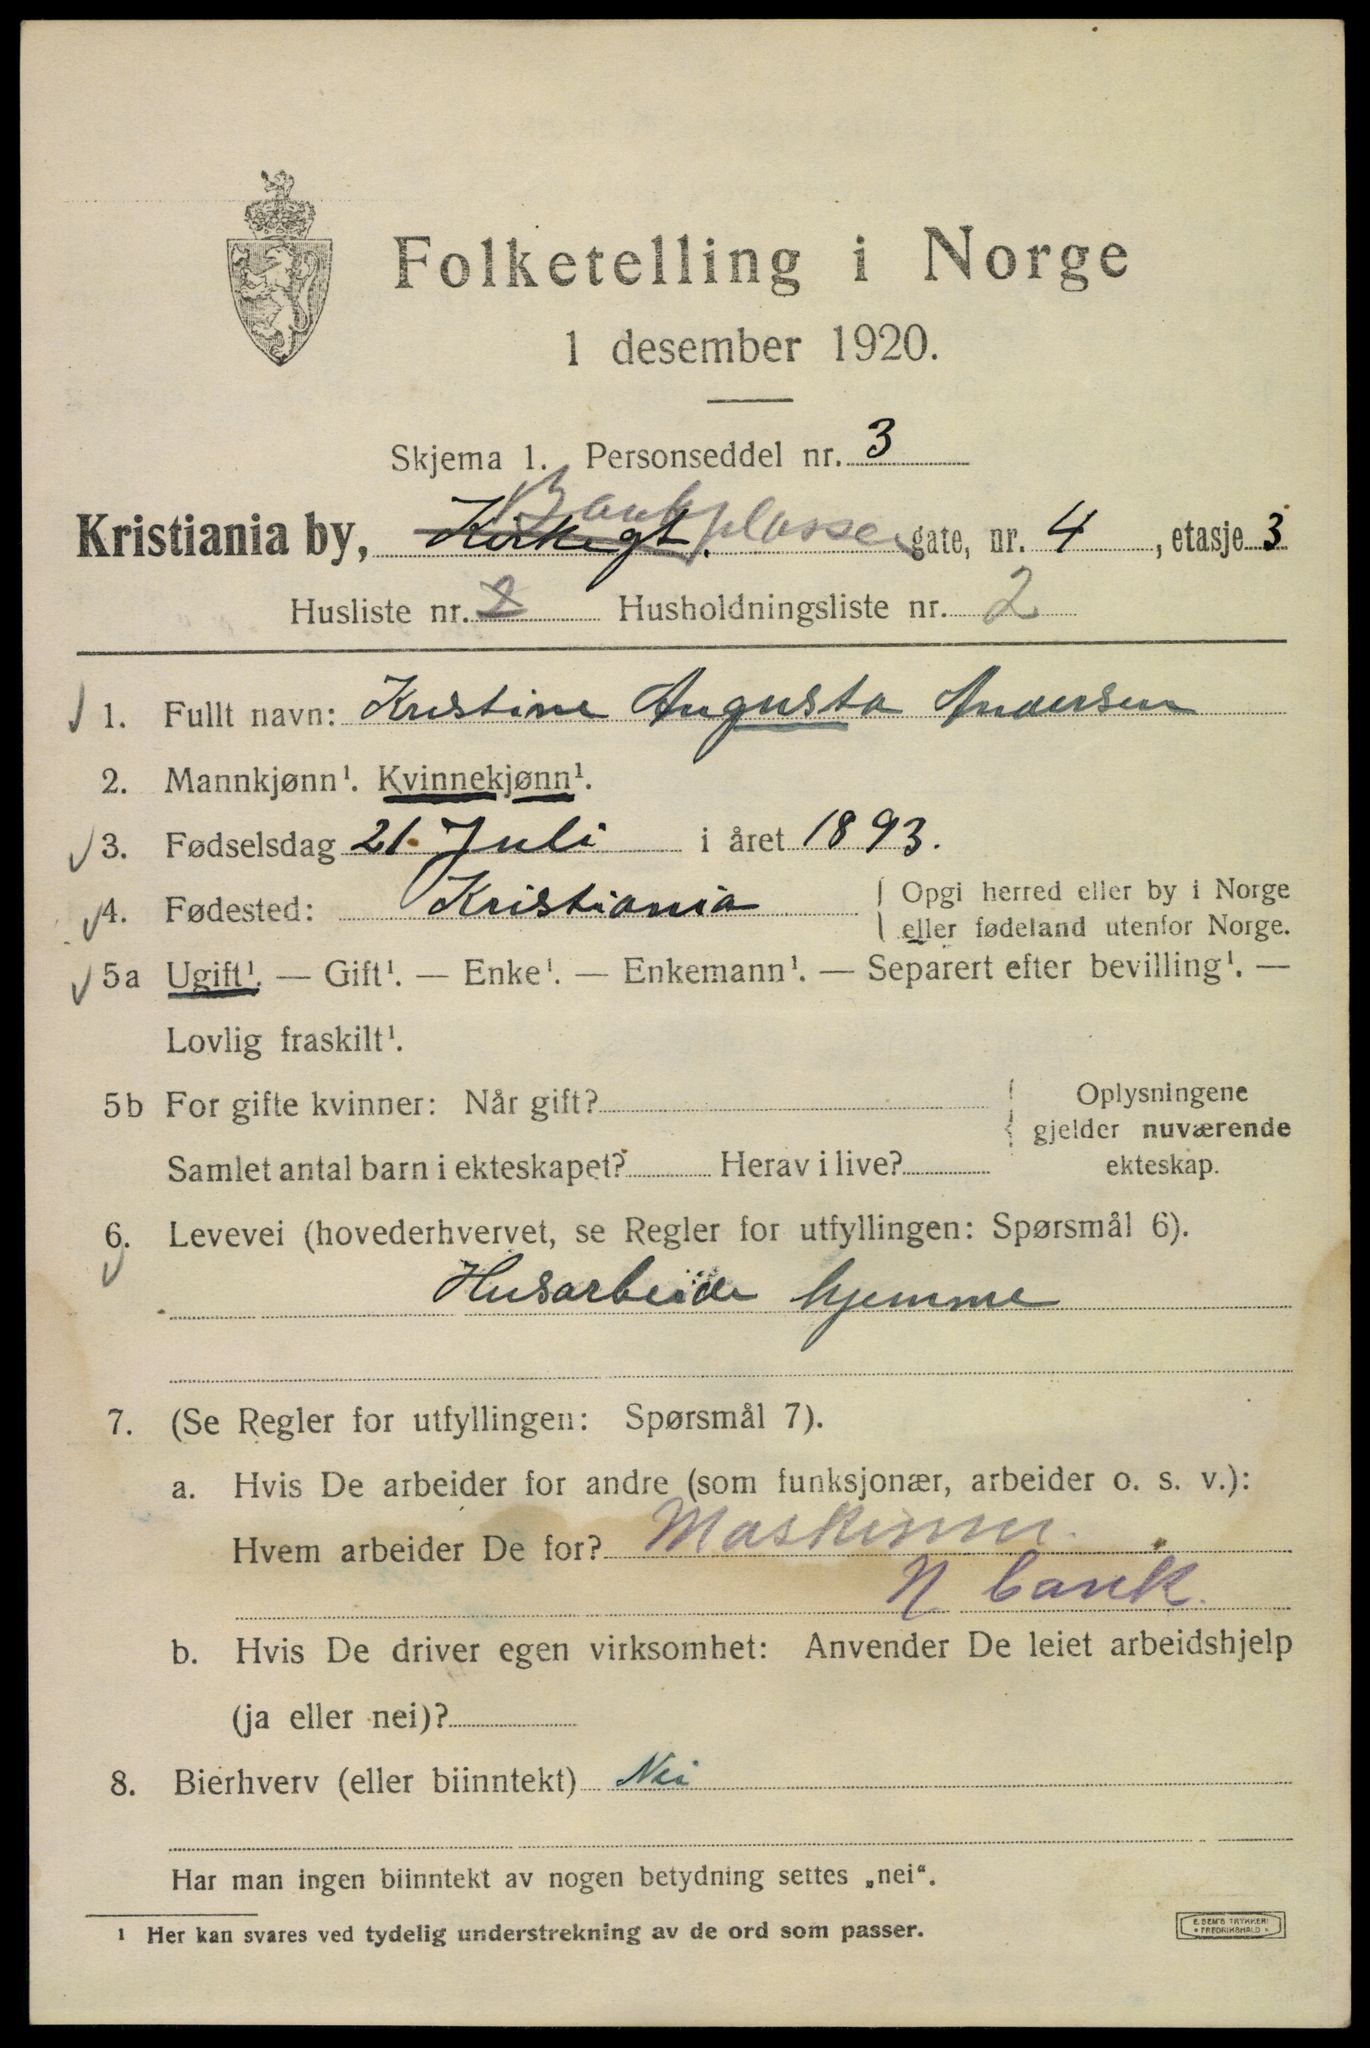 Folketelling i Norge
1 desember 1920.
Skjema 1. Personseddel nr. 3
Kristiania by, Kirkegt. Bankplassen gate, nr. 4, etasje 3
Husliste nr. 2 Husholdningsliste nr. 2
1. Fullt navn: Kristine Augusta Andersen
2. Mannkjønn¹. Kvinnekjønn¹.
3. Fødselsdag 21. Juli i året 1893.
4. Fødested: Kristiania Opgi herred eller by i Norge
eller fødeland utenfor Norge.
5a Ugift¹. — Gift¹. — Enke¹. — Enkemann¹. — Separert efter bevilling¹. —
Lovlig fraskilt¹.
5b For gifte kvinner: Når gift? Oplysningene
gjelder nuværende
Samlet antal barn i ekteskapet? Herav i live? ekteskap.
6. Levevei (hovederhvervet, se Regler for utfyllingen: Spørsmål 6).
Husarbeide hjemme
7. (Se Regler for utfyllingen: Spørsmål 7).
a. Hvis De arbeider for andre (som funksjonær, arbeider o. s. v.):
Hvem arbeider De for?
N. bank.
b. Hvis De driver egen virksomhet: Anvender De leiet arbeidshjelp
(ja eller nei)?
8. Bierhverv (eller biinntekt) Nei
Har man ingen biinntekt av nogen betydning settes „nei“.
¹ Her kan svares ved tydelig understrekning av de ord som passer.
E. SEM'S TRYKKERI
FREDRIKSHALD